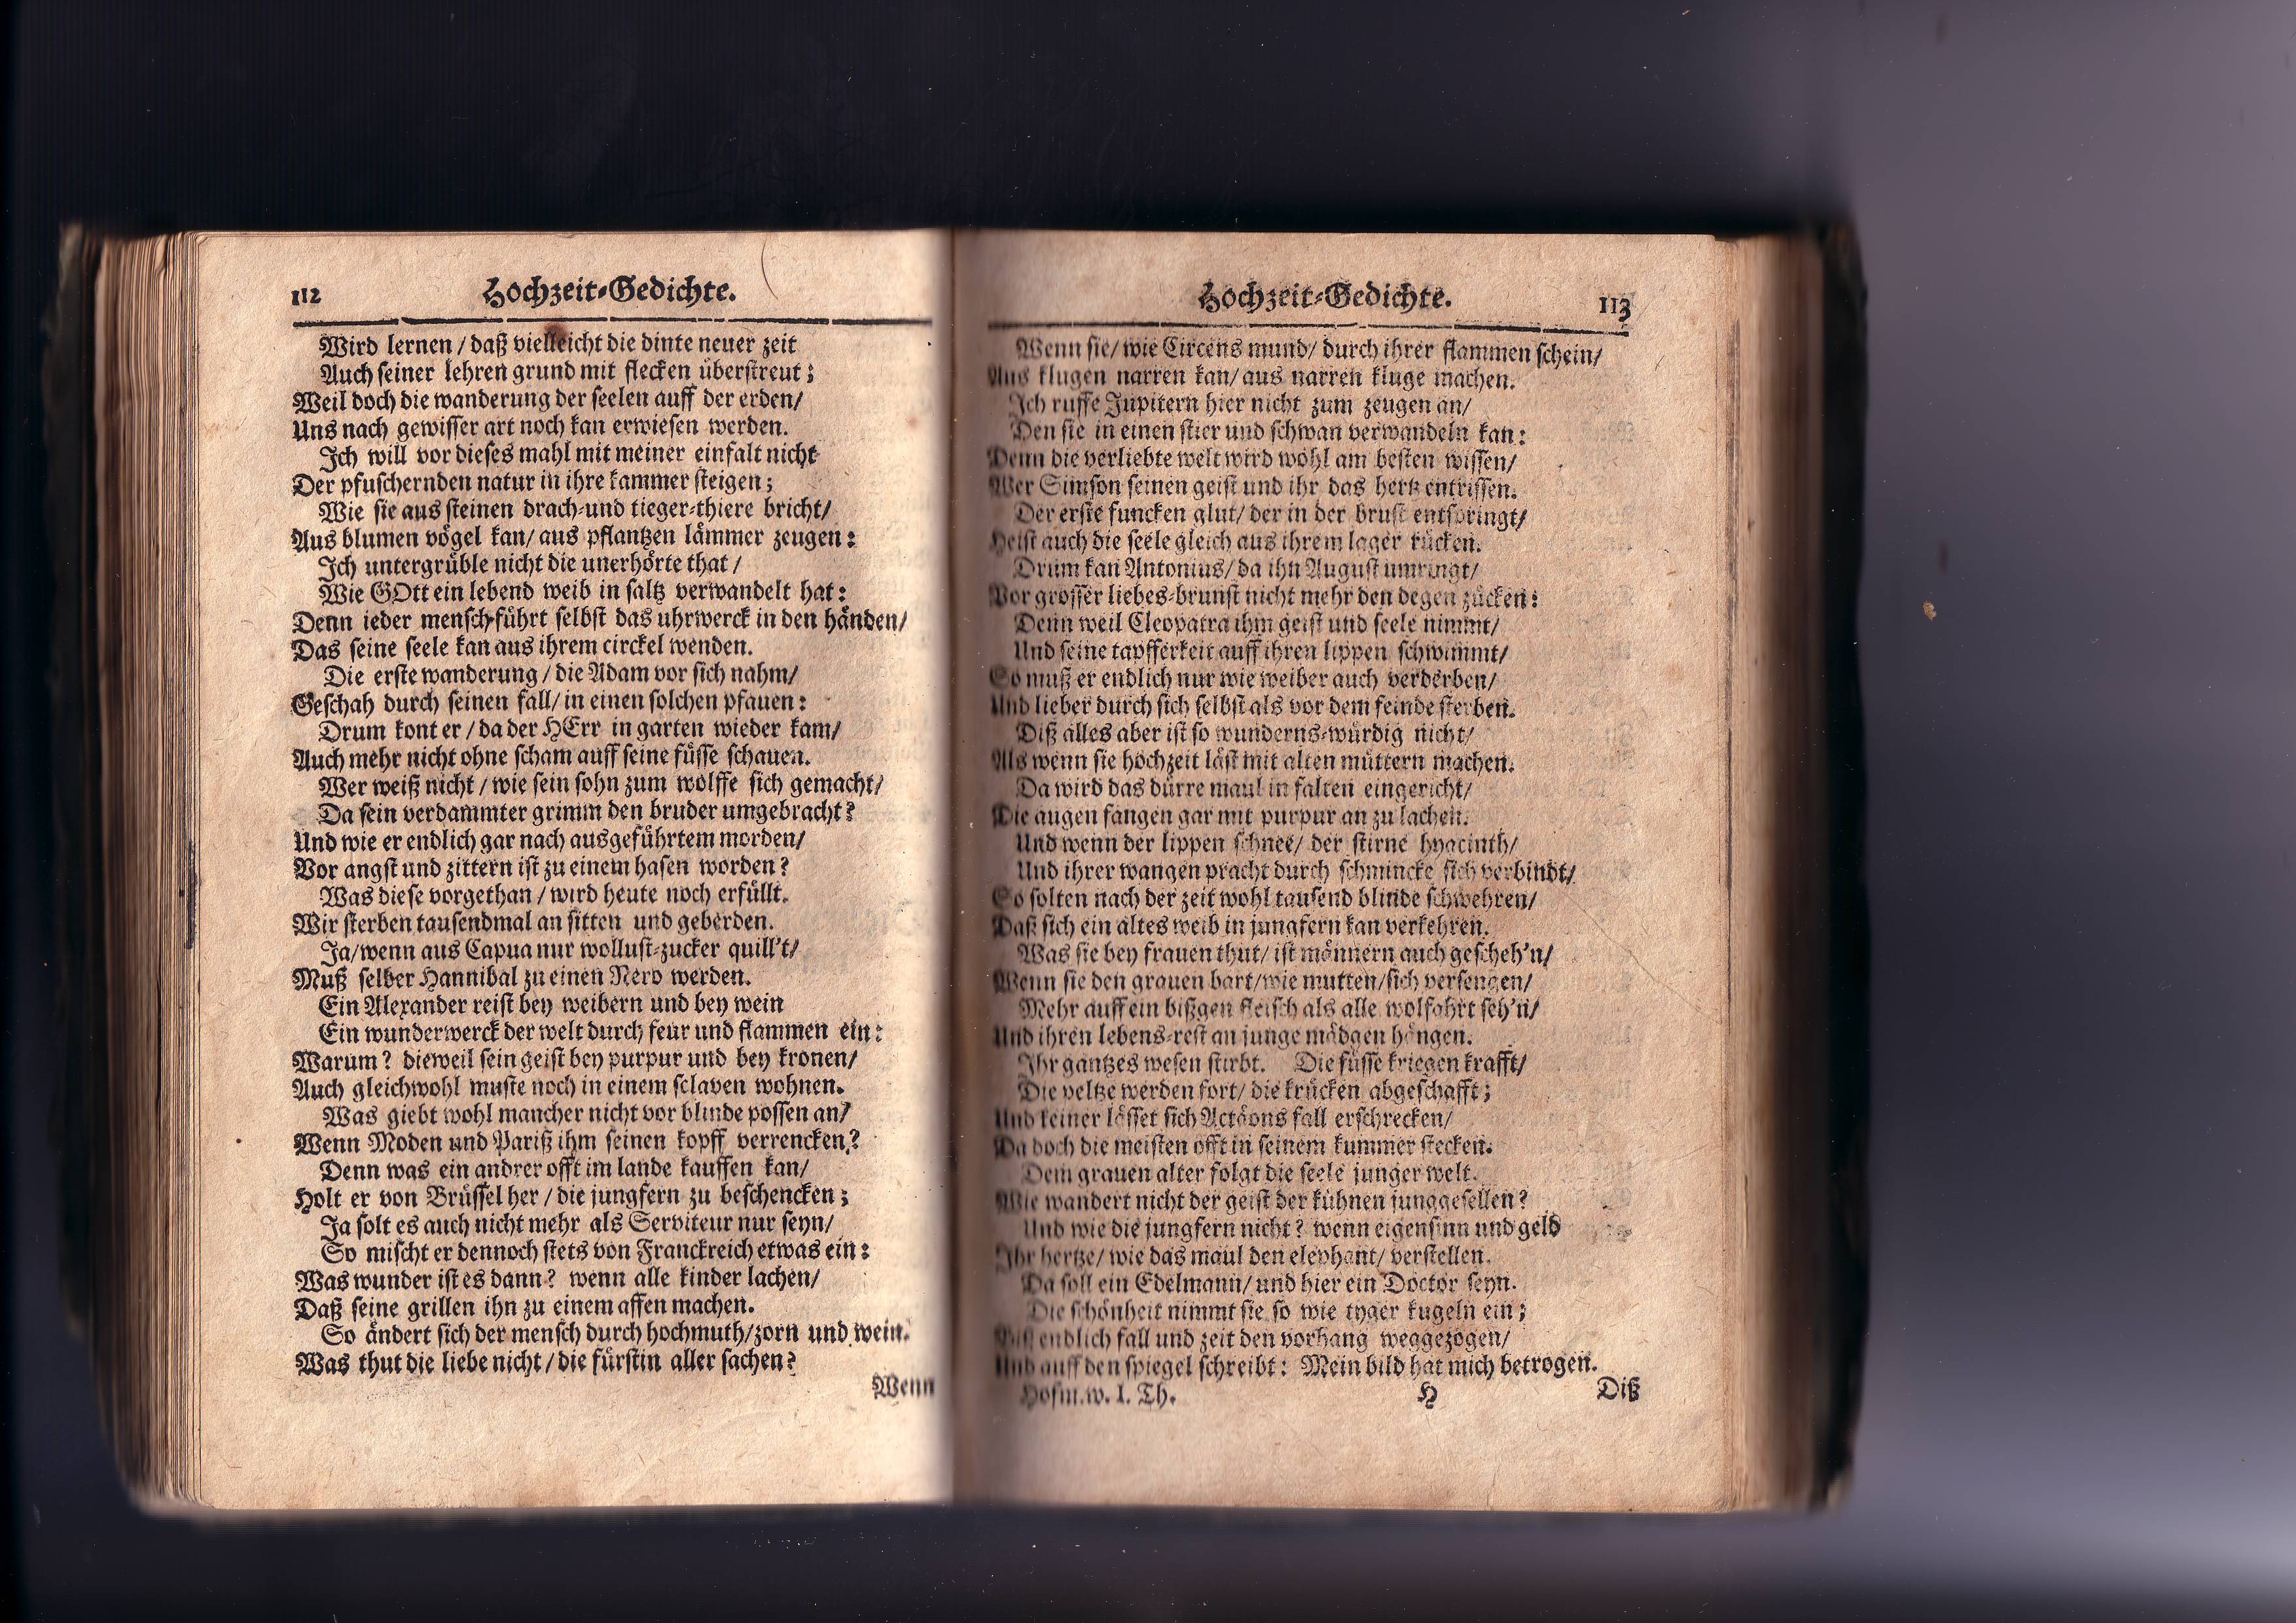 112 Hochzeit-Gedichte.
Wird lernen / daß vielleicht die dinte neuer zeit
Auch seiner lehren grund mit flecken überstreut;
Weil doch die wanderung der seelen auff der erden/
Uns nach gewisser art noch kan erwiesen werden.
Ich will vor dieses mahl mit meiner einfalt nicht
Der pfuschernden natur in ihre kammer steigen;
Wie sie aus steinen drach-und tieger-thiere bricht/
Aus blumen vögel kan/ aus pflantzen lämmer zeugen:
Ich untergrüble nicht die unerhörte that /
Wie GOtt ein lebend weib in saltz verwandelt hat:
Denn ieder mensch führt selbst das uhrwerck in den händen/
Das seine seele kan aus ihrem circkel wenden.
Die erste wanderung / die Adam vor sich nahm/
Geschah durch seinen fall/ in einen solchen pfauen:
Drum kont er / da der HErr in garten wieder kam/
Auch mehr nicht ohne scham auff seine füsse schauen.
Wer weiß nicht / wie sein sohn zum wolffe sich gemacht/
Da sein verdammter grimm den bruder umgebracht?
Und wie er endlich gar nach ausgeführtem morden/
Vor angst und zittern ist zu einem hasen worden?
Was diese vorgethan / wird heute noch erfüllt.
Wir sterben tausendmal an sitten und geberden.
Ja/wenn aus Capua nur wollust-zucker quill't/
Muß selber Hannibal zu einen Nero werden.
Ein Alexander reist bey weibern und bey wein
Ein wunderwerck der welt durch feur und flammen ein:
Warum? dieweil sein geist bey purpur und bey kronen/
Auch gleichwohl muste noch in einem sclaven wohnen.
Was giebt wohl mancher nicht vor blinde possen an/
Wenn Moden und Pariß ihm seinen kopff verrencken?
Denn was ein andrer offt im lande kauffen kan/
Holt er von Brüssel her / die jungfern zu beschencken;
Ja solt es auch nicht mehr als Serviteur nur seyn/
So mischt er dennoch stets von Franckreich etwas ein:
Was wunder ist es dann? wenn alle kinder lachen/
Daß seine grillen ihn zu einem affen machen.
So ändert sich der mensch durch hochmuth/zorn und wein.
Was thut die liebe nicht / die fürstin aller sachen?
Wenn
Hochzeit-Gedichte. 113
Wenn sie/ wie Circens mund/ durch ihrer flammen schein/
Aus klugen narren kan/ aus narren kluge machen.
Ich ruffe Jupitern hier nicht zum zeugen an/
Den sie in einen stier und schwan verwandeln kan:
Denn die verliebte welt wird wohl am besten wissen/
Wer Simson seinen geist und ihr das hertz entrissen.
Der erste funcken glut/ der in der brust entspringt/
Heist auch die seele gleich aus ihrem lager rücken.
Drum kan Antonius/ da ihn August umringt/
Vor grosser liebes-brunst nicht mehr den degen zücken:
Denn weil Cleopatra ihm geist und seele nimmt/
Und seine tapfferkeit auff ihren lippen schwimmt/
So muß er endlich nur wie weiber auch verderben/
Und lieber durch sich selbst als vor dem feinde sterben.
Diß alles aber ist so wunderns-würdig nicht/
Als wenn sie hochzeit läst mit alten müttern machen.
Da wird das dürre maul in falten eingericht/
Die augen fangen gar mit purpur an zu lachen.
Und wenn der lippen schnee/ der stirne hyacinth/
Und ihrer wangen pracht durch schmincke sich verbindt/
So solten nach der zeit wohl tausend blinde schwehren/
Daß sich ein altes weib in jungfern kan verkehren.
Was sie bey frauen thut/ ist männern auch gescheh'n/
Wenn sie den grauen bart/wie mutten/sich versengen/
Mehr auff ein bißgen fleisch als alle wolfahrt seh'n/
Und ihren lebens-rest an junge mädgen hängen.
Ihr gantzes wesen stirbt. Die füsse kriegen krafft/
Die peltze werden fort/ die krücken abgeschafft;
Und keiner lässet sich Actäons fall erschrecken/
Da doch die meisten offt in seinem kummer stecken.
Dem grauen alter folgt die seele junger welt.
Wie wandert nicht der geist der kühnen junggesellen?
Und wie die jungfern nicht? wenn eigensinn und geld
Ihr hertze/ wie das maul den elephant/ verstellen.
Da soll ein Edelmann/ und hier ein Doctor seyn.
Die schönheit nimmt sie so wie tyger kugeln ein;
Biß endlich fall und zeit den vorhang weggezogen/
Und auff den spiegel schreibt: Mein bild hat mich betrogen.
Hofm. w. I. Th. H Diß